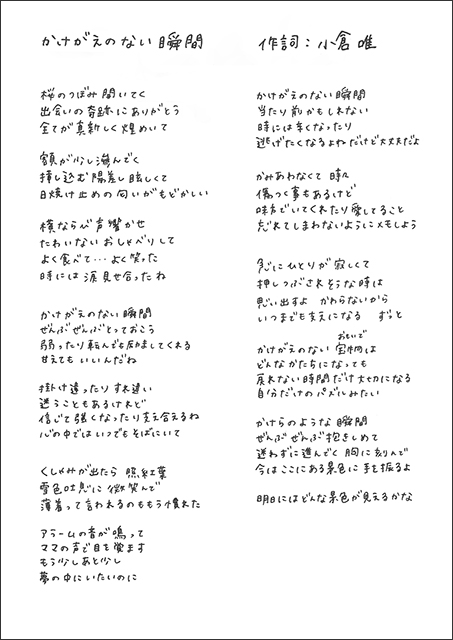 かけがえのない瞬間
作詞：小倉 唯
桜のつぼみ開いてく
出会いの奇跡にありがとう
全てが真新しく煌めいて
額が少し滲んでく
挿し込む陽差し眩しくて
日焼け止めの匂いがもどかしい
横ならび声響かせ
たわいないおしゃべりして
よく食べて…よく笑った
時には涙見せ合ったね
かけがえのない瞬間
ぜんぶぜんぶとっておこう
弱ったり転んでも励ましてくれる
甘えてもいいんだね
掛け違ったりすれ違い
迷うこともあるけれど
信じて強くなったり支え合えるね
心の中ではいつでもそばにいて
くしゃみが出たら 照紅葉
雪色吐息に微笑んで
薄着って言われるのももう慣れた
アラームの音が鳴って
ママの声で目を覚ます
もう少しあと少し
夢の中にいたいのに
かけがえのない瞬間
当たり前かもしれない
時には辛くなったり
逃げたくなるよねだけど大丈夫だよ
かみあわなくて 時々
傷つく事もあるけど
味方でいてくれたり愛してること
忘れてしまわないようにメモしよう
急にひとりが寂しくて
押しつぶされそうな時は
思い出すよ かわらないから
いつまでも支えになる ずっと
かけがえのない宝物は
おもいで
どんなかたちになっても
戻れない時間だけ大切になる
自分だけのパズルみたい
かけらのような瞬間
ぜんぶぜんぶ抱きしめて
迷わずに進んでく胸に刻んで
今はここにある景色に手を振るよ
明日にはどんな景色が見えるかな